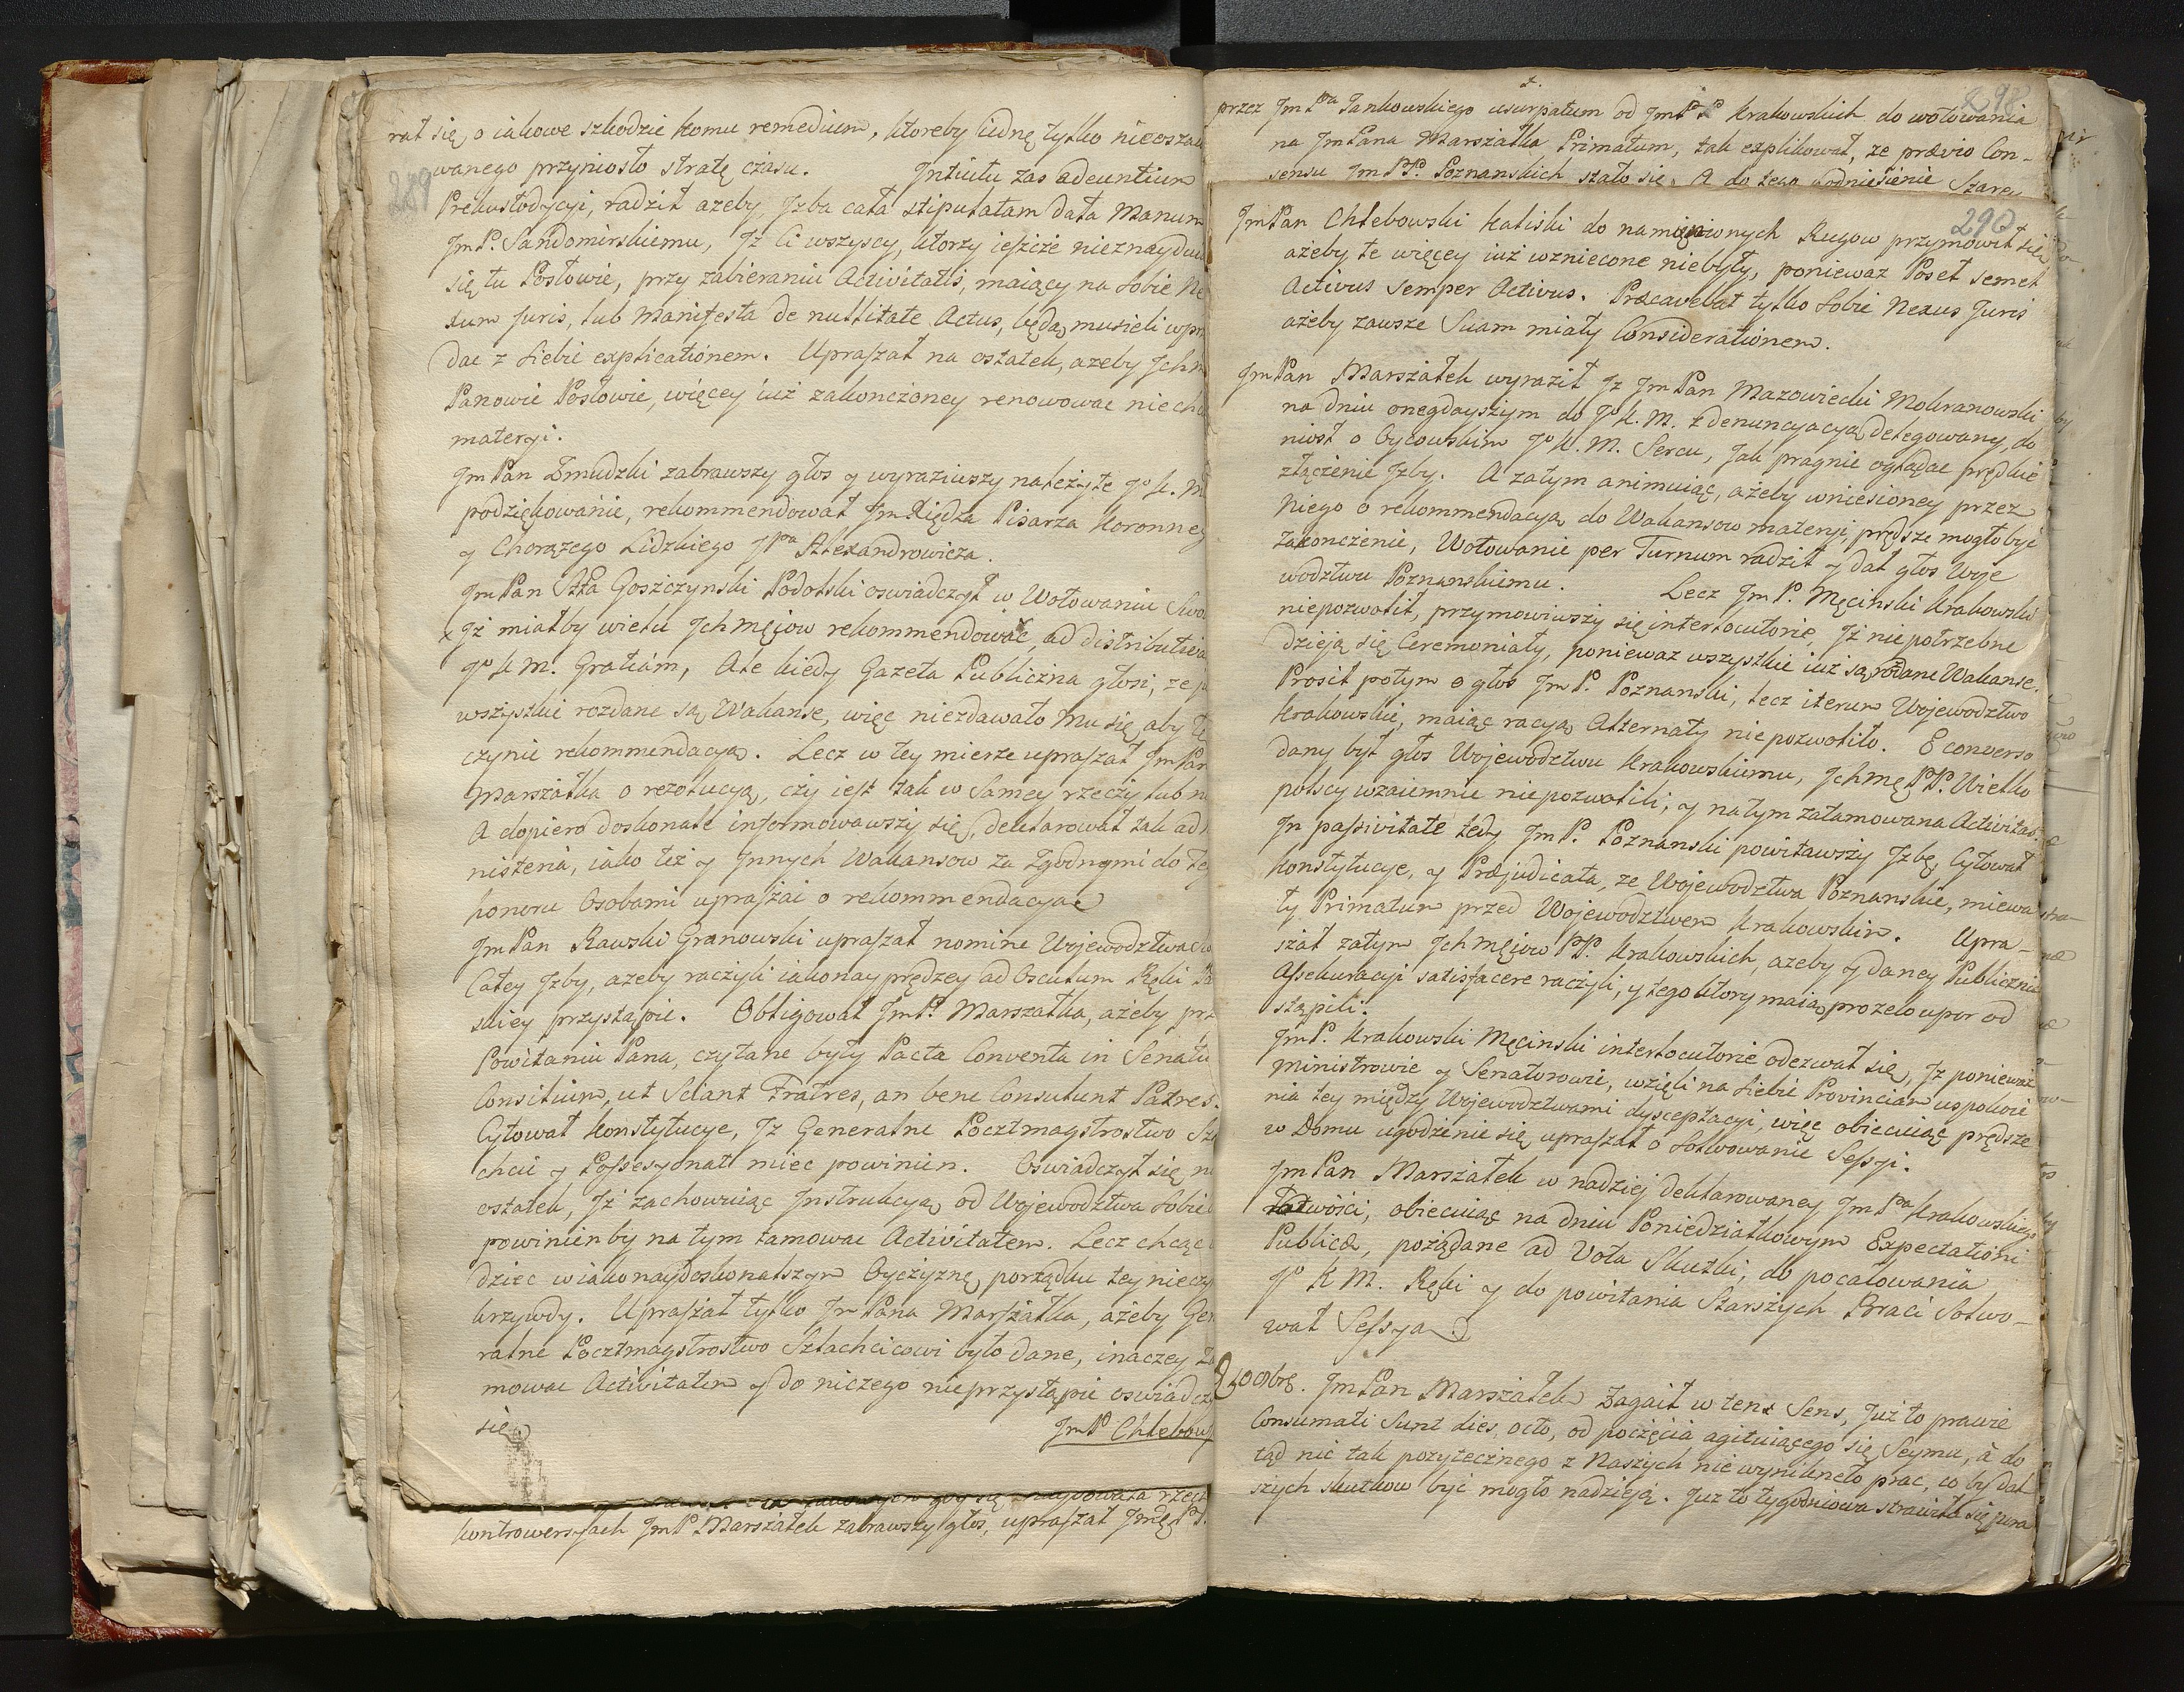 289
rał się, o iakowe szkodzie komu remedium, ktoreby iednę tylko nieoszaco
wanego przyniosło stratę czasu. Intuitu zas adeuntium
Prekustodycyi, radził azeby Jzba cała stipulatam dała Manum
JmP. Sandomirskiemu, Jz Ci wszyscy, ktorzy ieszcze nieznayduią
się tu Posłowie, przy zabieraniu Activitatis, maiący na sobie Ne
xum Juris, lub Manifesta de nullitate Actus, będą musieli wprz
dac z siebie explicationem. Upraszał na ostatek, azeby Jchm
Panowie Posłowie, więcey iuż zakonczoney renowowac nie chc
materyi.
JmPan Zmudzki zabrawszy głos y wyraziwszy należyte Jo K. M
podziękowanie, rekommendował JmXiędza Pisarza Koronneg
y Chorązego Lidzkiego Jpa Alexandrowicza.
JmPan Stta Goszczynski Podolski oswiadczył w Wotowaniu Swo
x Jż miałby wielu Jchmęiow rekommendować ad distributiva
Jo K M. Gratiam, Ale kiedy Gazeta Publiczna głosi, ze ju
wszyszkie rozdane są Wakanse, więc niezdawało mu się, aby tę
czynic rekommendacyą. Lecz w tey mierze upraszał JmPan
Marszałka o rezolucyą, czy iest tak w Samey rzeczy lub n
A dopiero doskonale informowawszy się, deklarował tak ad
nisteria, iako też y Jnnych Wakansow za Zgodnymi do teg
honoru Osobami upraszai o rekommendacyą
JmPan Rawski Granowski upraszał nomine Wojewodztwa
Całey Jzby, azeby raczyli iakonayprędzey ad Osculum Ręki Pa
skiey przystąpic. Obligował JmP. Marszałka, ażeby prz
Powitaniu Pana, czytane były Pacta Conventa in Senatu
Consilium, ut Sciant Fratres, an bene Consulunt Patres.
Cytował Konstytucye, Jz Generalne Pocztmagstrostwo Szla
chcic y Possesyonat miec powinien. Oswiadczył się n
ostatek, Jż zachowuiąc Jnstrukcyą od Wojewodztwa sobie
powinienby na tym tamowac Activitatem. Lecz chcąc
dziec w iakonaydoskonalszym Oyczyznę porządku tey nieczy
krzywdy. Upraszał tylko JmPana Marszałka, ażeby Gen
ralne Pocztmagstrostwo Szlachcicowi było dane, inaczey Ta
mowac Activitatem y do niczego nieprzystąpic oswiadcz
się
JmP Chlebows
kontrowersyach JmP Marszałek zabrawszy głos, upraszał Jmę P.
298
przez JmPna Jankowskiego usurpatum od JmPP Krakowskich do wotowania
na JmPana Marszałka Primatum, tak explikował, ze prævio Con-
sensu JmPP. Poznanskich stało się. A do tego podniesienie Szarey
290
JmPan Chlebowski Kaliski do namienionych Rugow przymowił się
ażeby te więcey iuż wzniecone niebyły, poniewaz Poseł semel
Activus Semper Activus. Præcavebat tylko sobie Nexus Juris
ażeby zawsze Suam miały Considerationem.
JmPan Marszałek wyraził Jz JmPan Mazowiecki Mokranowski
na dniu onegdayszym do Jo K. M. z denuncyacyą delegowany, do
niosł o Oycowskim Jo K. M. Sercu, Jak pragnie oglądac prędkie
złączenie Jzby. A zatym animuiąc, ażeby wniesioney przez
Niego o rekommendacyą do Wakansow materyi, prędsze mogło być
zakonczenie, Wotowanie per Turnum radził y dał głos Woje
wodztwu Poznanskiemu. Lecz JmP. Męcinski Krakowski
niepozwolił, przymowiwszy się interlocutorie Jż niepotrzebne
dzieją się Ceremoniały, poniewaz wszystkie iuż są rozdane Wakanse.
Prosił potym o głos JmP. Poznanski, lecz iterum Wojewodztwo
Krakowskie, maiąc racyą Alternaty niepozwoliło. E converso
dany był głos Wojewodztwu Krakowskiemu, Jchmę PP. Wielko
polscy wzaiemnie niepozwolili, y na tym zatamowana Activitas.
Jn passivitate tedy JmP. Poznanski powitawszy Jzbę, Cytował
Konstytucye, y Præjudicata, ze Wojewodztwa Poznanskie, miewa
ły Primatum przed Wojewodztwem Krakowskim. Upra-
szał zatym Jchmęiow PP. Krakowskich, azeby y daney Publicznie
Assekuracyi satisfacere raczyli, y tego ktory maią pro zelo upor od
stąpili.
JmP. Krakowski Męcinski interlocutorie odezwał się, Jz ponieważ
Ministrowie y Senatorowie, wzięli na siebie Provinciam uspokoie
nia tey między Wojewodztwami dysceptacyi, więc obiecuiąc prędsze
w Domu ugodzenie się, upraszał o solwowanie Sessyi.
JmPan Marszałek w nadziej deklarowaney JmPa Krakowskiego
Łatwości, obiecuiąc na dniu Poniedziałkowym Expectationi
Publicæ, pożądane ad Vota Skutki, do pocałowania
Jo K M. Ręki y do powitania Starszych Braci Solwo-
wał Sessyą
JmPan Marszałek Zagaił w ten Sens, Już to prawie
Consumati Sunt dies octo, od poczęcia agituiącego się Seymu, a do
tąd nic tak pozytecznego z Naszych niewyniknęło prac, co by dal
szych skutkow być mogło nadzieją. Juz to tygodniowa strawiła się pora